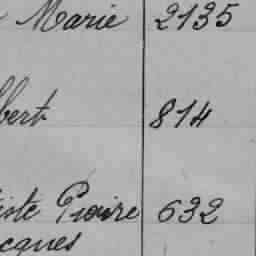 Marie 2135
bert 814
iste Pierre 632
cques